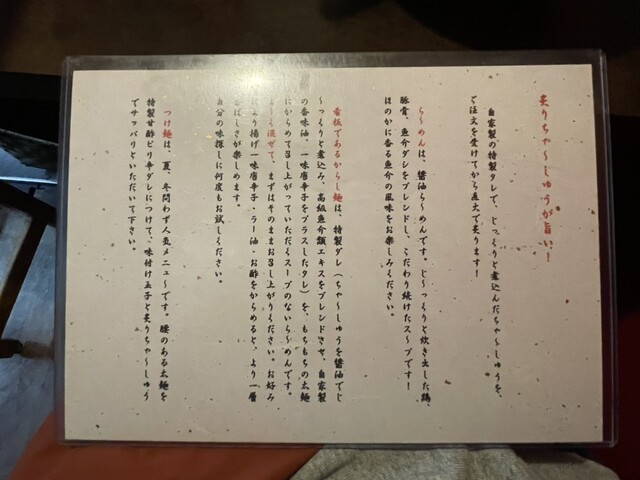 炙りちゃ〜しゅうが旨い！
自家製の特製タレで、じっくりと煮込んだちゃ〜しゅうを、
ご注文を受けてから直火で炙ります！
ら〜めんは、醤油ら〜めんです。じ〜っくりと炊き出した鶏、
豚骨、魚介ダシをブレンドし、こだわり続けたス〜プです！
ほのかに香る魚介の風味をお楽しみください。
看板であるからし麺は、特製ダレ（ちゃ〜しゅうを醤油でじ
〜っくりと煮込み、高級魚介類エキスをブレンドさせ、自家製
の香味油、一味唐辛子をプラスしたタレ）を、もちもちの太麺
にからめて召し上がっていただくスープのないら〜めんです。
よ〜く混ぜて、まずはそのままお召し上がりください。お好み
により揚げ一味唐辛子・ラー油・お酢をからめると、より一層
香ばしさが楽しめます。
自分の味探しに何度もお試しください。
つけ麺は、夏、冬問わず人気メニュ〜です。腰のある太麺を
特製甘酢ピリ辛ダレにつけて、味付け玉子と炙りちゃ〜しゅう
でサッパリといただいて下さい。